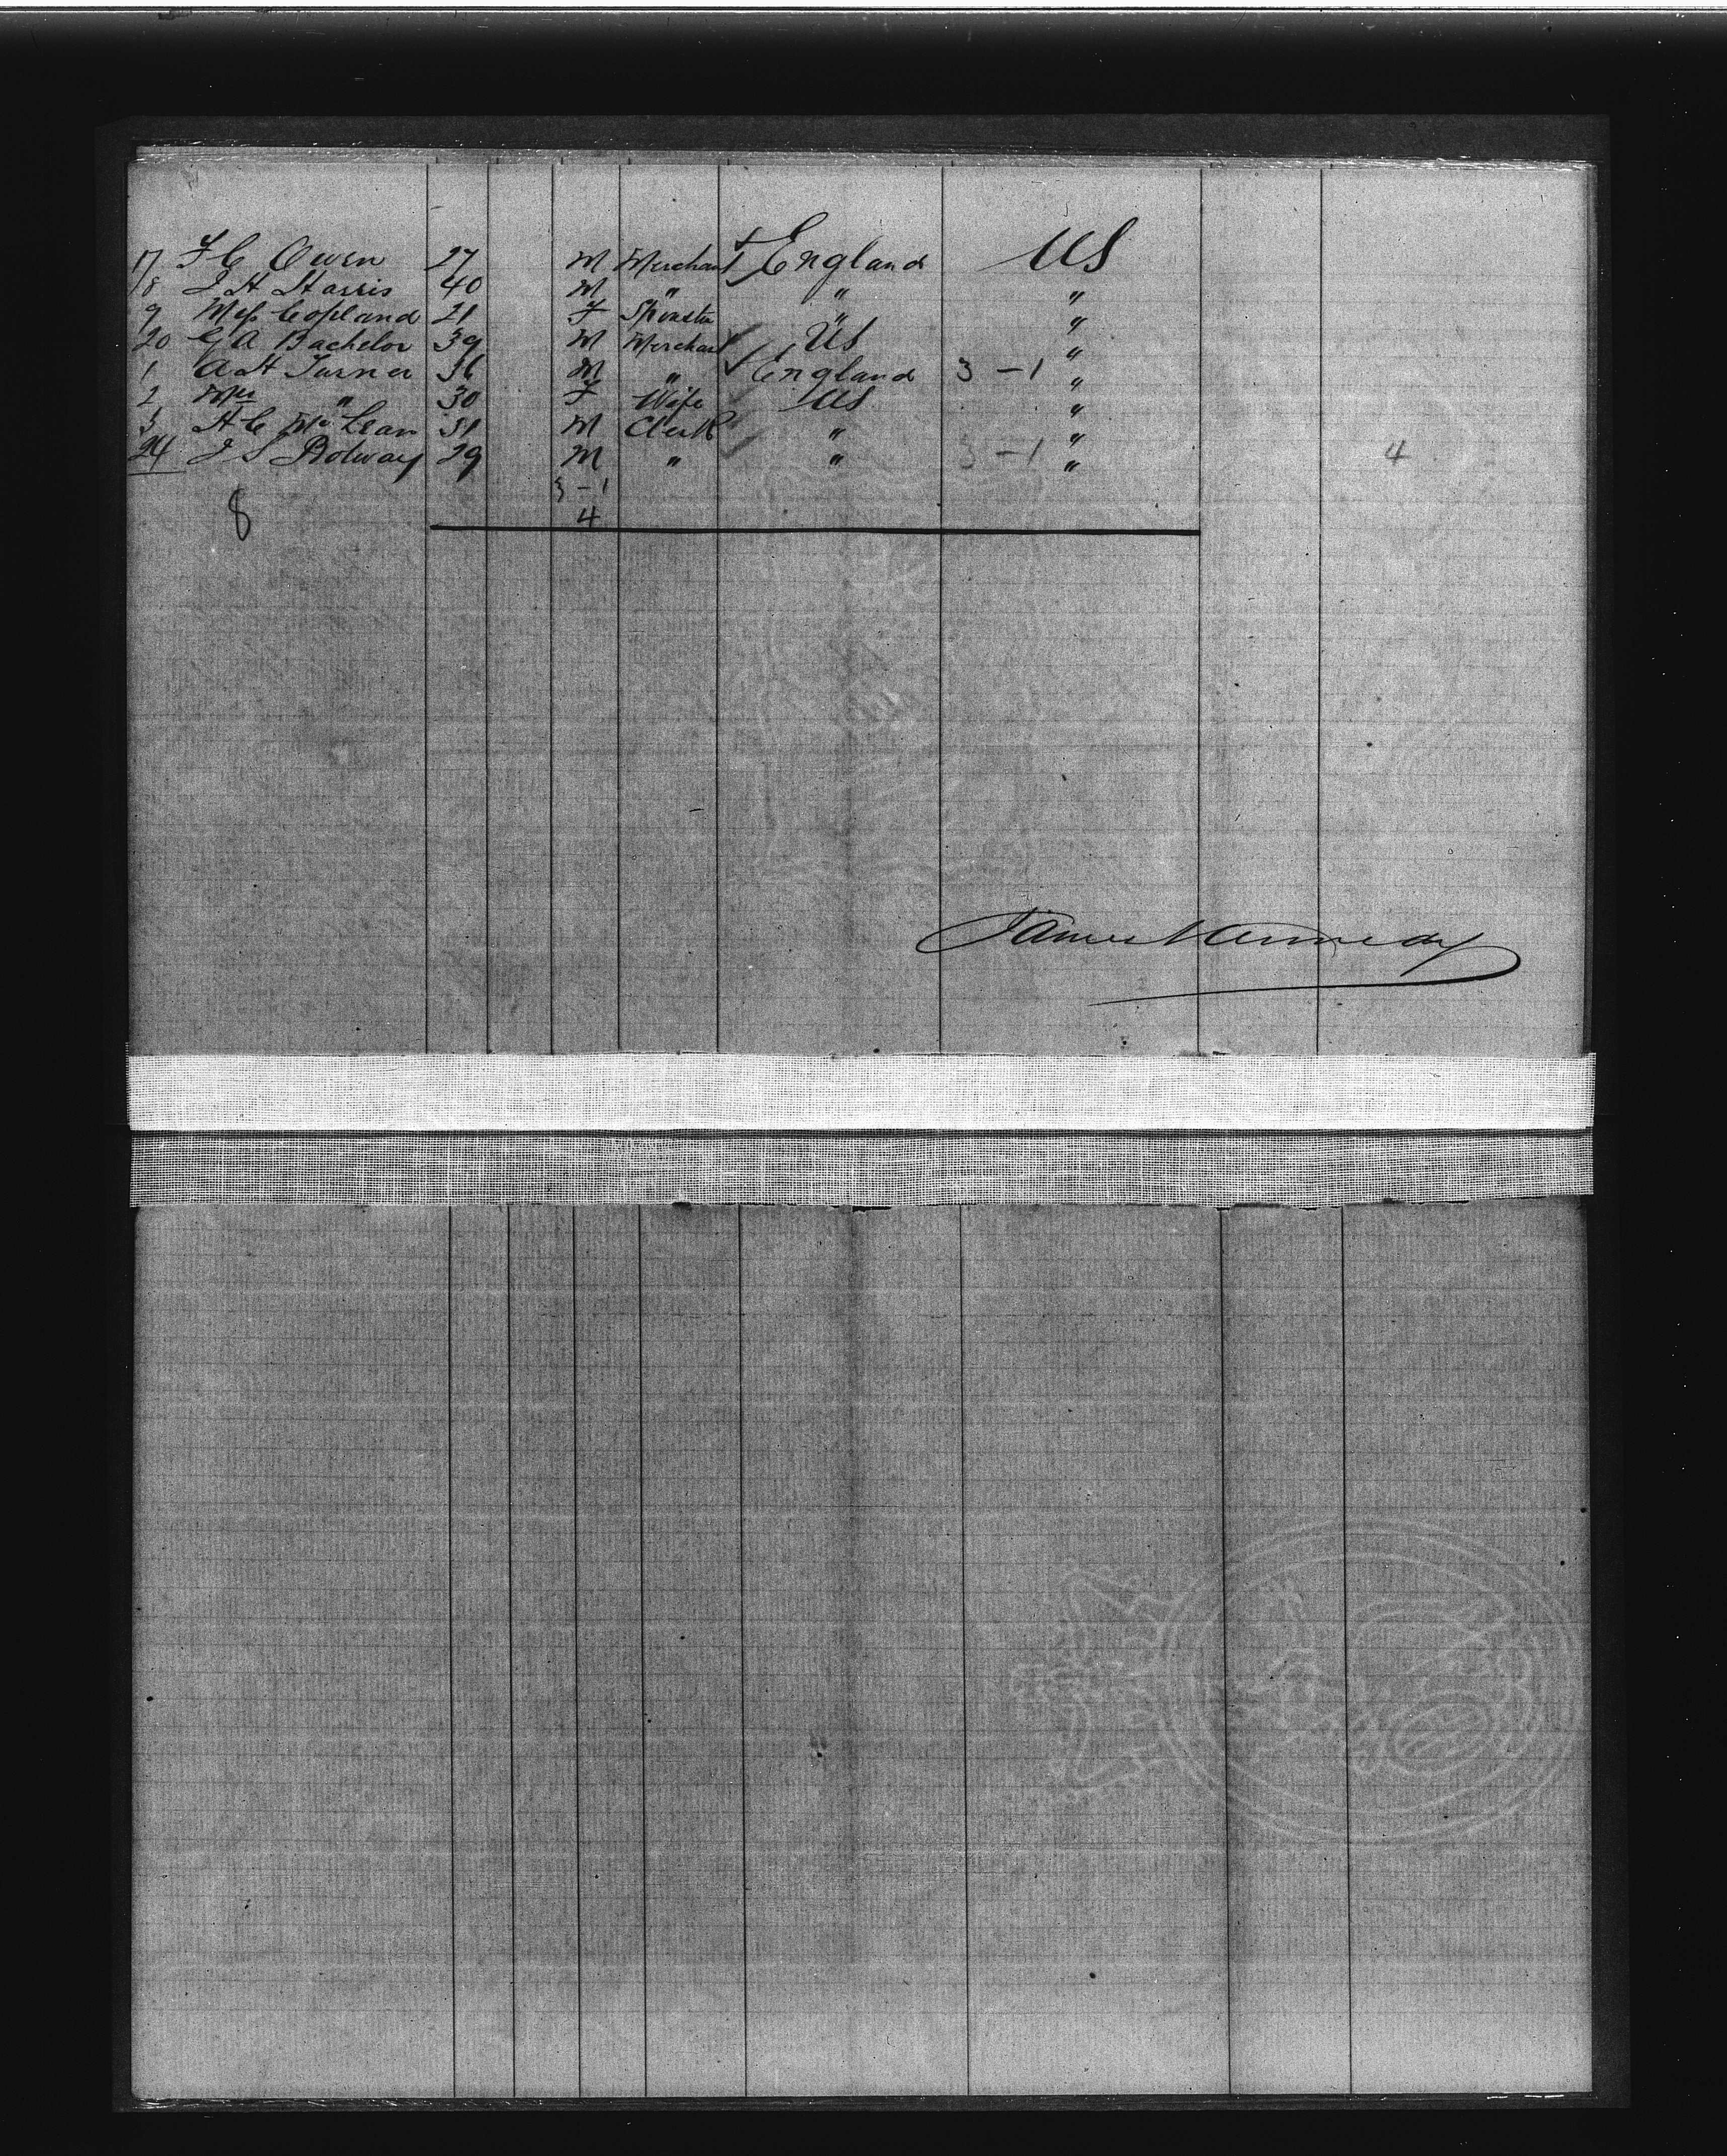 17 F C Owen 27 M Merchant England US
18 J H Harris 40 M " " "
9 Miss Copland 21 F Spinster " "
20 G A Bachelor 39 M Merchant US "
1 A H Turner 36 M " England 3 - 1 "
2 Mrs " 30 F Wife US "
3 H C McLean 31 M Clerk " "
24 J S 29 M " " 3 - 1 " 4
3 - 1
8 4
James Kennedy